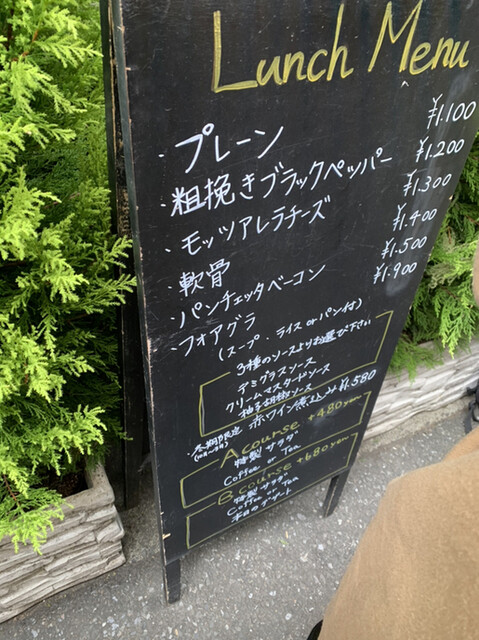 Lunch Menu
・プレーン ¥1.100
・粗挽きブラックペッパー ¥1.200
・モッツアレラチーズ ¥1.300
・軟骨 ¥1.400
・パンチェッタベーコン ¥1.500
・フォアグラ ¥1.900
(スープ・ライス or パン付)
3種のソースよりお選び下さい
デミグラスソース
クリームマスタードソース
柚子胡椒ソース
冬期限定 赤ワイン煮込み ¥1.580
A course +480yen
特製サラダ
Coffee or Tea
B course +680yen
特製サラダ
Coffee or Tea
本日のデザート